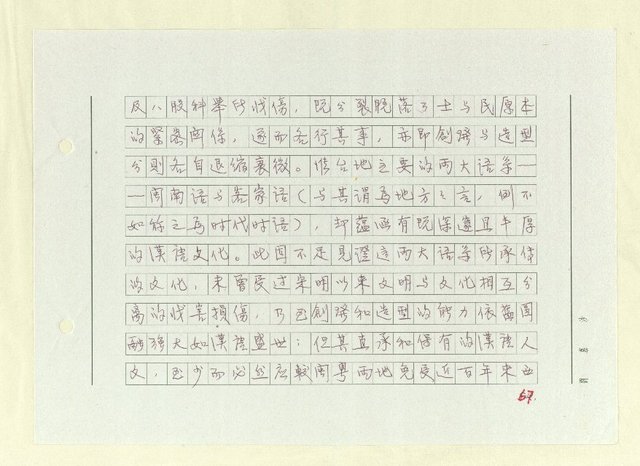 及八股科举所戕傷，既分裂脱落了士与民原本
的緊密関係，遂而各行其事，亦即創發与造型
分則各自退缩衰微。惟台地主要的両大语系—
—闽南语与客家语（与其謂為地方之言，倒不
如称之為时代时语），却蕴涵有既深邃且丰厚
的漢語文化。此固不足見證这両大语系所承传
的文化，未曾受过宋明以来文明与文化相互分
離的戕害損傷，乃至創發和造型的能力依舊圓
融強大如漢語盛世；但其直承和保有的漢语人
文，至少而必然应較闽粤両地免受近百年来西
67.